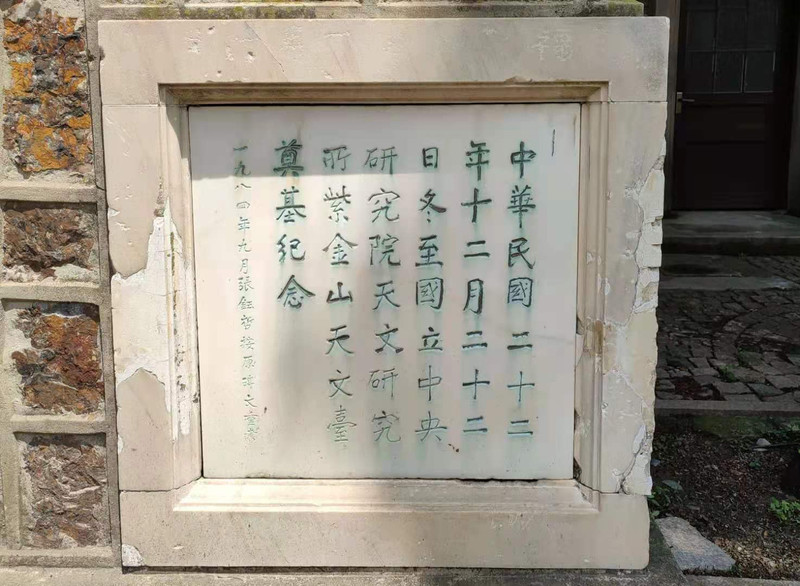 中華民國二十二
年十二月二十二
日冬至國立中央
研究院天文研究
所紫金山天文臺
奠基紀念
一九八四年九月張鈺哲按原碑文書